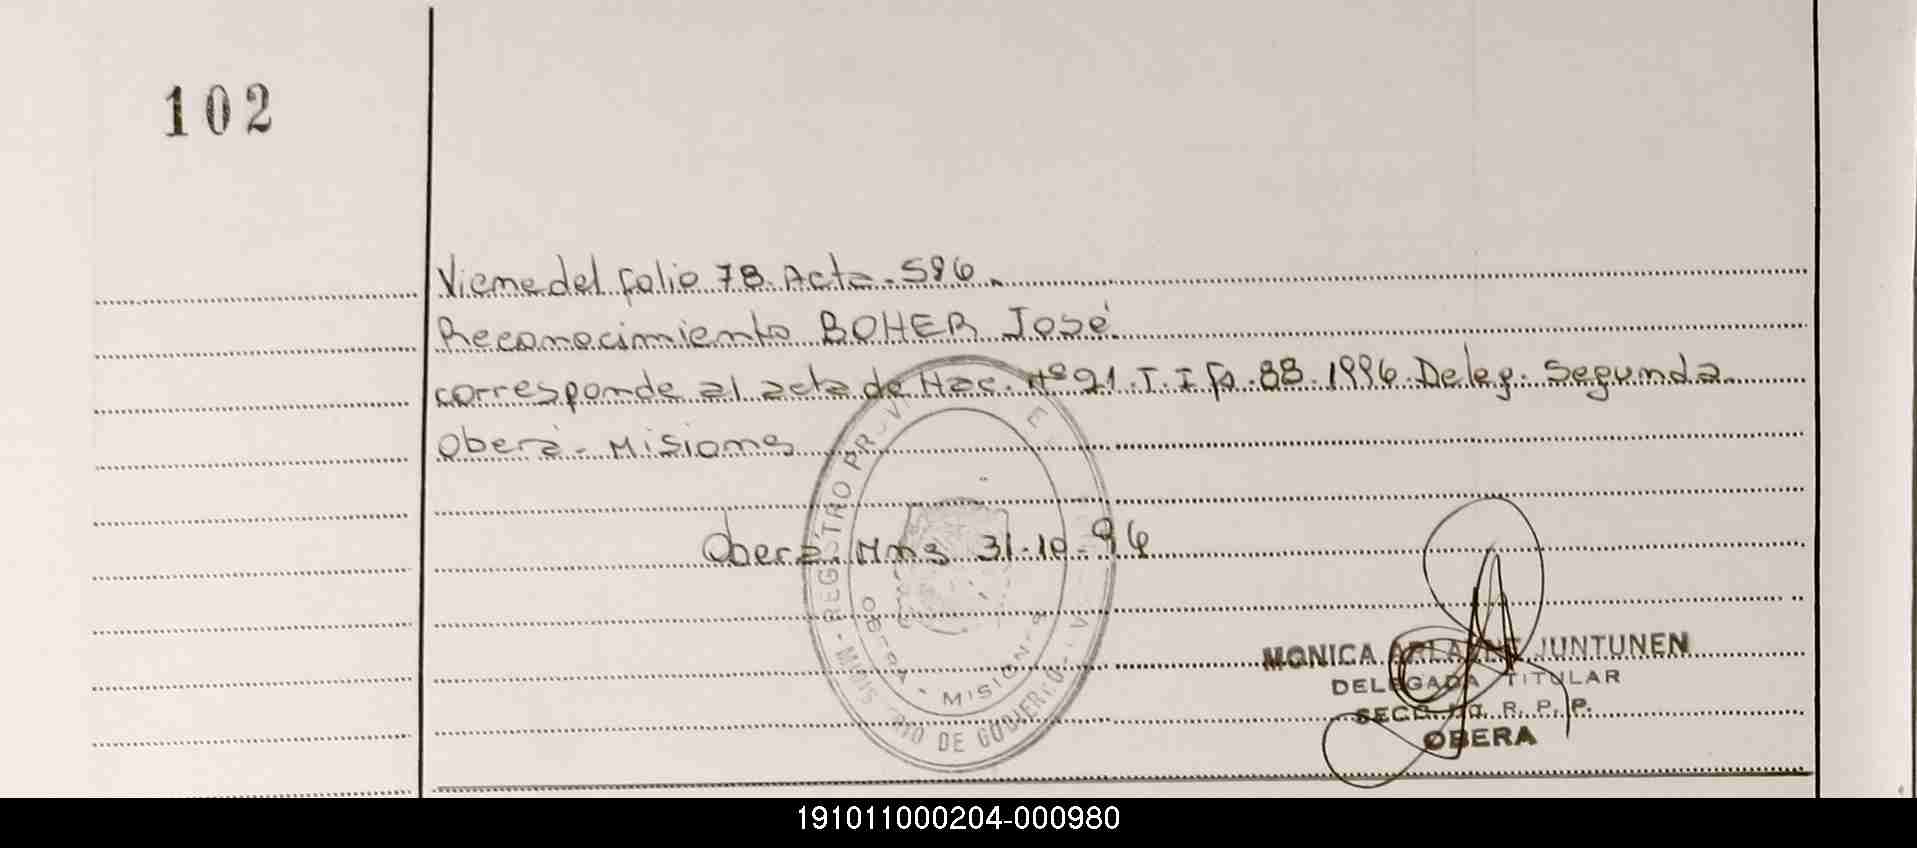 102
Viene del folio 78. Acta. 596.
Reconocimiento BOHER José
corresponde al acta de Nac. Nº 91. T. I Fº. 88. 1996. Deleg. Segunda
Oberá - Misiones
Oberá. Mns 31-10-96
REGISTRO PROVI
MINISTERIO DE GOBIERNO
OBERA - MISIONES
MONICA ARLAINE JUNTUNEN
DELEGADA TITULAR
R. P. P.
OBERA
191011000204-000980